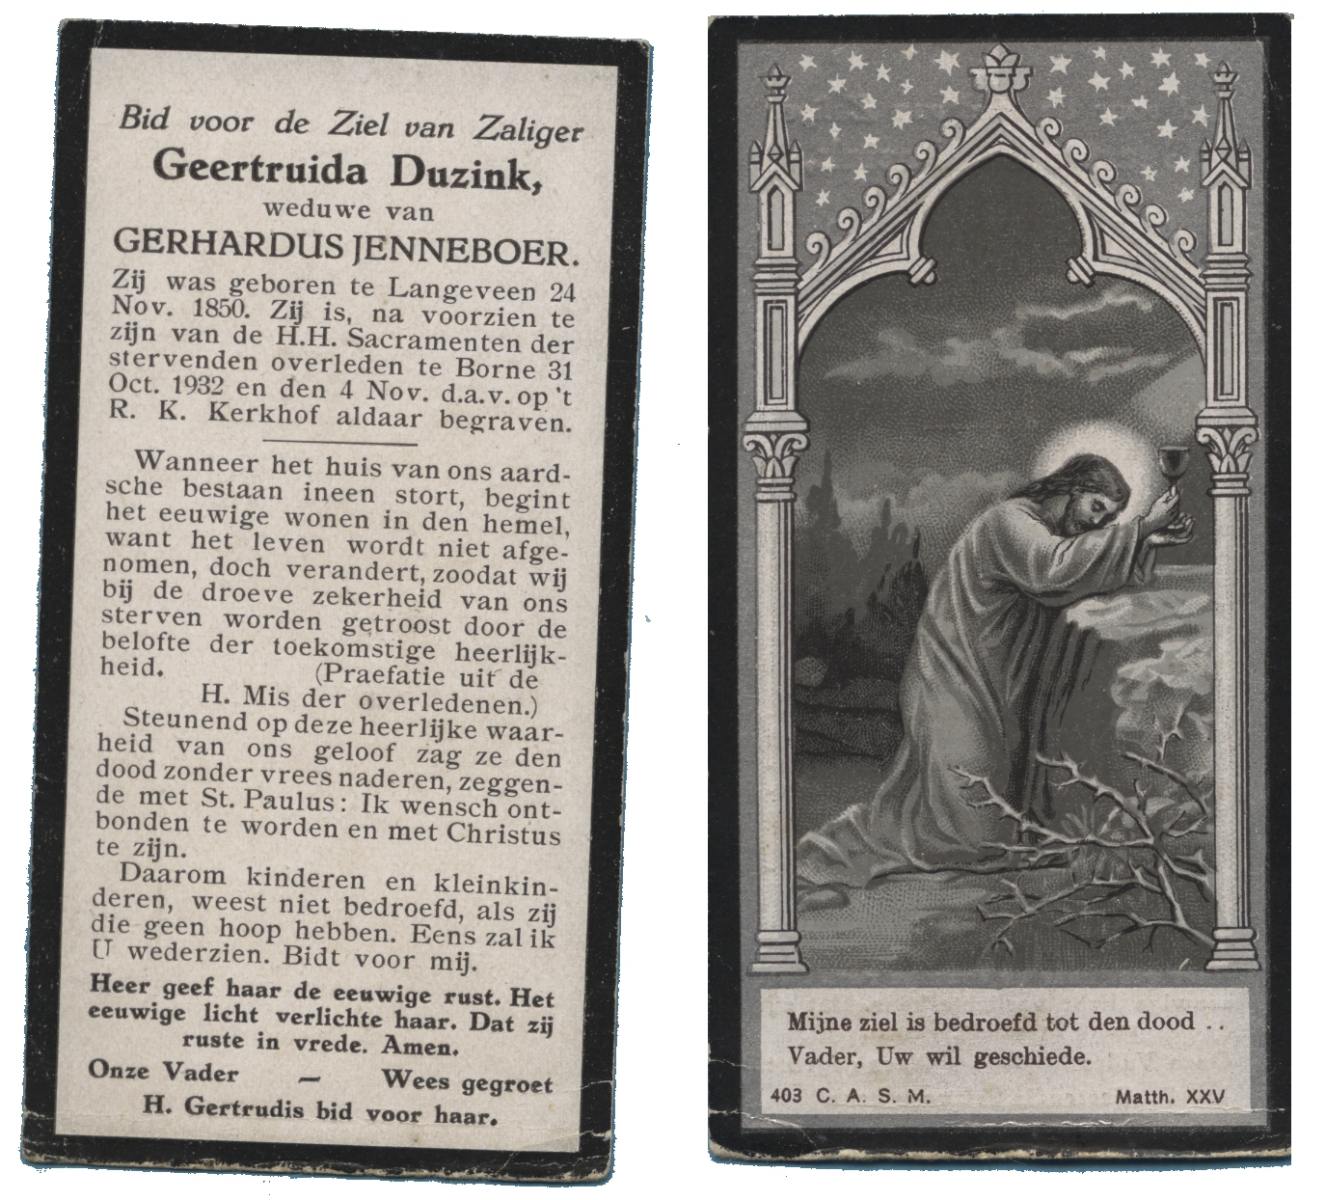 Bid voor de Ziel van Zaliger
Geertruida Duzink,
weduwe van
GERHARDUS JENNEBOER.
Zij was geboren te Langeveen 24
Nov. 1850. Zij is, na voorzien te
zijn van de H.H. Sacramenten der
stervenden overleden te Borne 31
Oct. 1932 en den 4 Nov. d.a.v. op 't
R. K. Kerkhof aldaar begraven.
Wanneer het huis van ons aard-
sche bestaan ineen stort, begint
het eeuwige wonen in den hemel,
want het leven wordt niet afge-
nomen, doch verandert, zoodat wij
bij de droeve zekerheid van ons
sterven worden getroost door de
belofte der toekomstige heerlijk-
heid. (Praefatie uit de
H. Mis der overledenen.)
Steunend op deze heerlijke waar-
heid van ons geloof zag ze den
dood zonder vrees naderen, zeggen-
de met St. Paulus: Ik wensch ont-
bonden te worden en met Christus
te zijn.
Daarom kinderen en kleinkin-
deren, weest niet bedroefd, als zij
die geen hoop hebben. Eens zal ik
U wederzien. Bidt voor mij.
Heer geef haar de eeuwige rust. Het
eeuwige licht verlichte haar. Dat zij
ruste in vrede. Amen.
Onze Vader — Wees gegroet
H. Gertrudis bid voor haar.
Mijne ziel is bedroefd tot den dood ..
Vader, Uw wil geschiede.
403 C. A. S. M. Matth. XXV